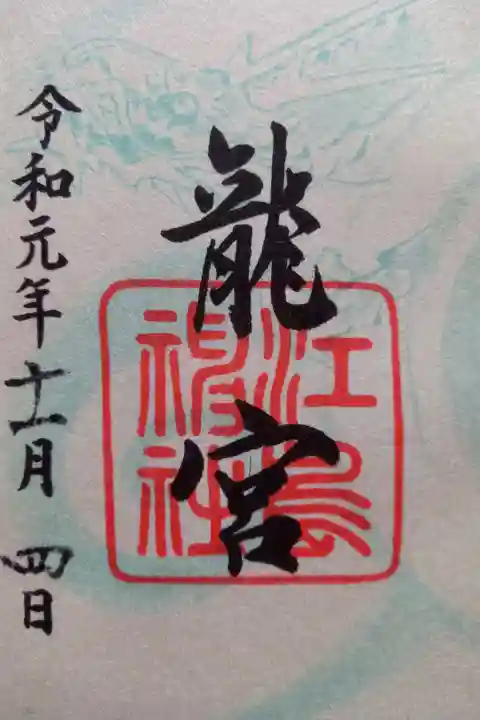 龍宮
江島神社
令和元年十一月四日